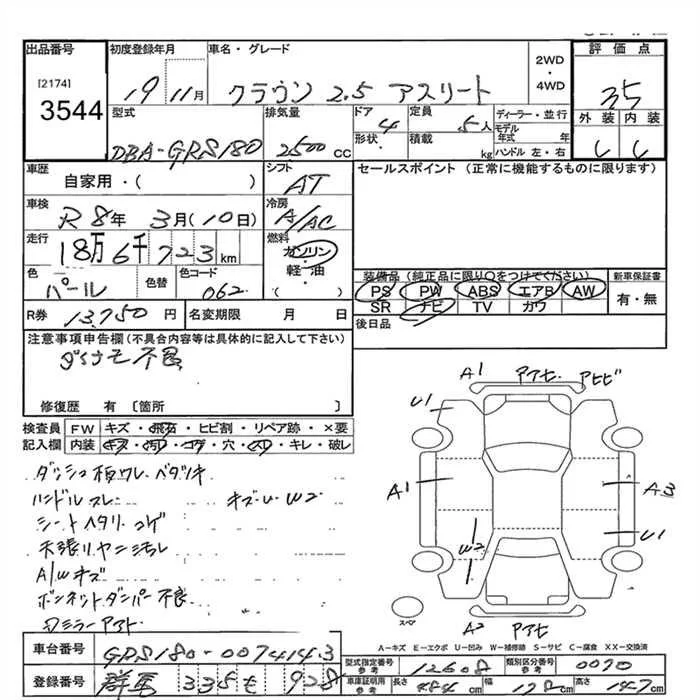 出品番号
[2174]
3544
初度登録年月
19 11月
車名・グレード
クラウン 2.5 アスリート
2WD
・
4WD
評価点
3.5
外装 内装
C C
型式
DBA-GRS180
排気量
2500 CC
ドア
4
形状
定員
5人
積載
kg
ディーラー・並行
モデル年式 年
ハンドル 左・右
車歴
自家用・( )
シフト
AT
セールスポイント (正常に機能するものに限ります)
車検
R8年 3月(10日)
冷房
A/AC
走行
18万6千723km
燃料
ガソリン
軽・油
( )
色
パール
色替
色コード
062
装備品(純正品に限り〇をつけてください)
PS PW ABS エアB AW
SR ナビ TV カワ
新車保証書
有・無
R券
13,750円
名変期限 月 日
後日品
注意事項申告欄(不具合内容等は具体的に記入して下さい)
不良
修復歴 有〔箇所 〕
検査員記入欄
FW キズ・飛石・ヒビ割・リペア跡・×要
内装 キズ・汚れ・コゲ・穴・スレ・キレ・破レ
ダッシュ板ワレ ベタツキ
ハンドルスレ キズ・U W2
シートヘタリ コゲ
天張リヤニヨゴレ
A/Wキズ
ボンネットダンパー不良
ミラーアト
A1 アアせ アとビ
U1
A1
A3
W2
U1
スペア
A2 アアせ
A-キズ E-エクボ U-凹み W-補修跡 S-サビ C-腐食 XX-交換済
車台番号
GRS180-0074143
登録番号
群馬 335 も 928
型式指定番号 参考
12608
類別区分番号 参考
0070
車庫証明用 参考
長さ 484 cm
幅 178 cm
高さ 147 cm